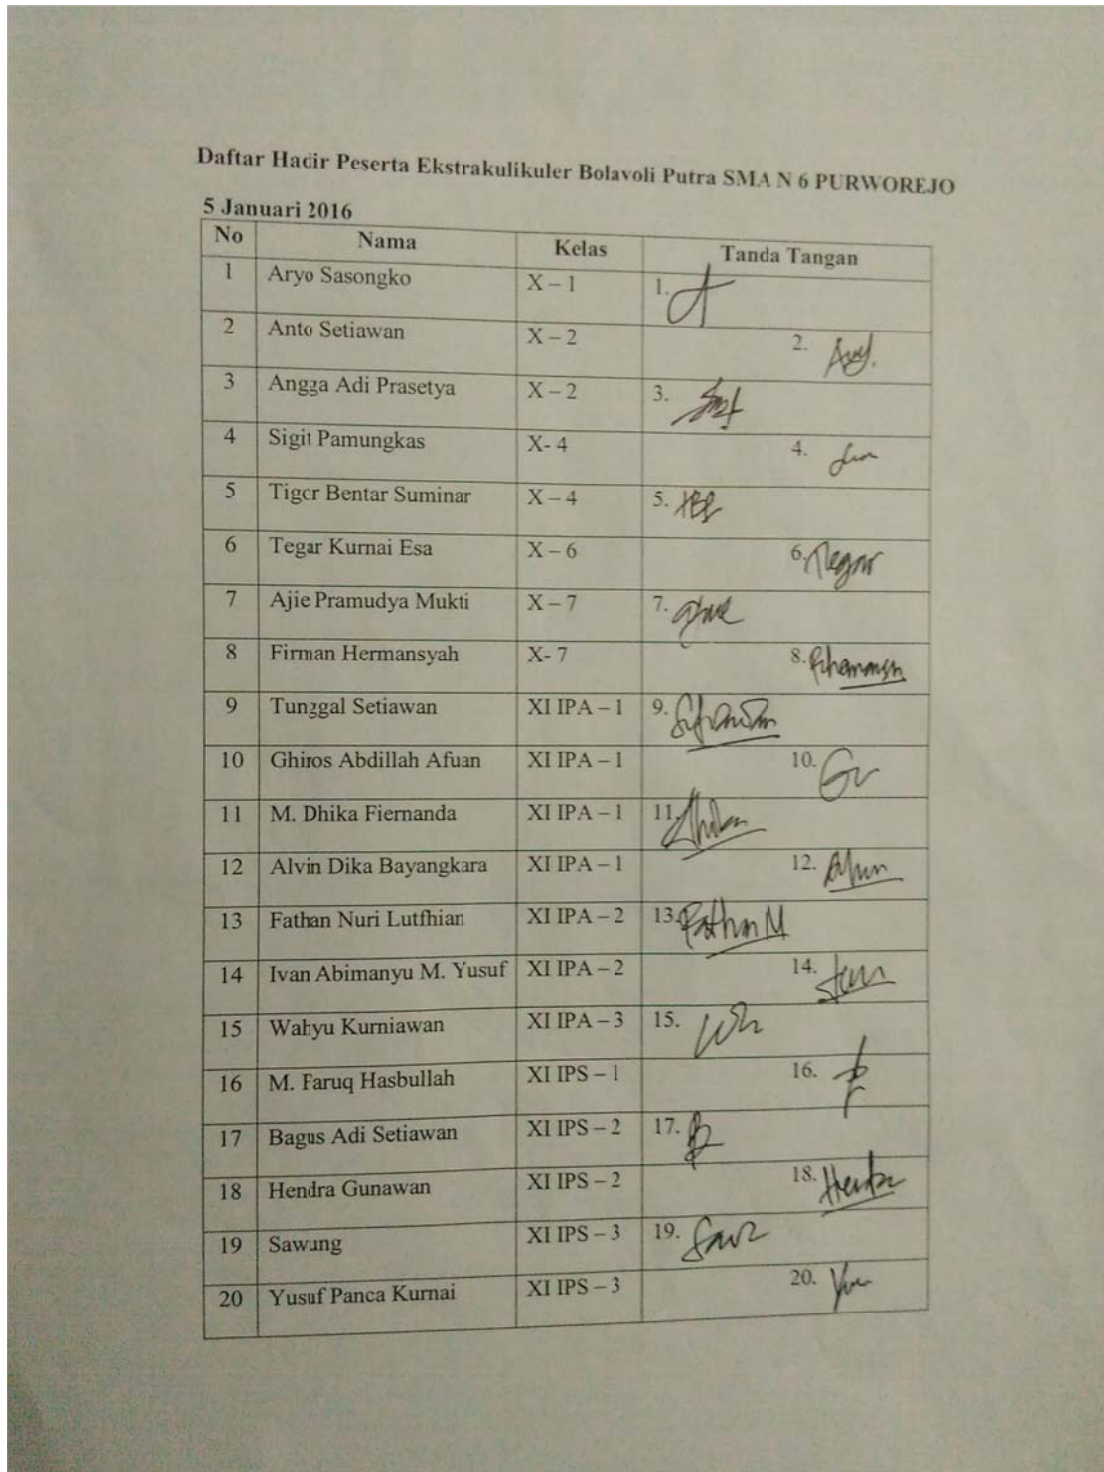 Daftar Hadir Peserta Ekstrakulikuler Bolavoli Putra SMA N 6 PURWOREJO
5 Januari 2016
No Nama Kelas Tanda Tangan
1 Aryo Sasongko X – 1 1.
2 Anto Setiawan X – 2 2.
3 Angga Adi Prasetya X – 2 3.
4 Sigit Pamungkas X- 4 4.
5 Tiger Bentar Suminar X – 4 5.
6 Tegar Kurnai Esa X – 6 6. Tegar
7 Ajie Pramudya Mukti X – 7 7.
8 Firman Hermansyah X- 7 8.
9 Tunggal Setiawan XI IPA – 1 9.
10 Ghiros Abdillah Afuan XI IPA – 1 10.
11 M. Dhika Fiernanda XI IPA – 1 11.
12 Alvin Dika Bayangkara XI IPA – 1 12.
13 Fathan Nuri Lutfhian XI IPA – 2 13. Fathan N
14 Ivan Abimanyu M. Yusuf XI IPA – 2 14.
15 Wahyu Kurniawan XI IPA – 3 15.
16 M. Faruq Hasbullah XI IPS – 1 16.
17 Bagus Adi Setiawan XI IPS – 2 17.
18 Hendra Gunawan XI IPS – 2 18.
19 Sawung XI IPS – 3 19.
20 Yusuf Panca Kurnai XI IPS – 3 20.